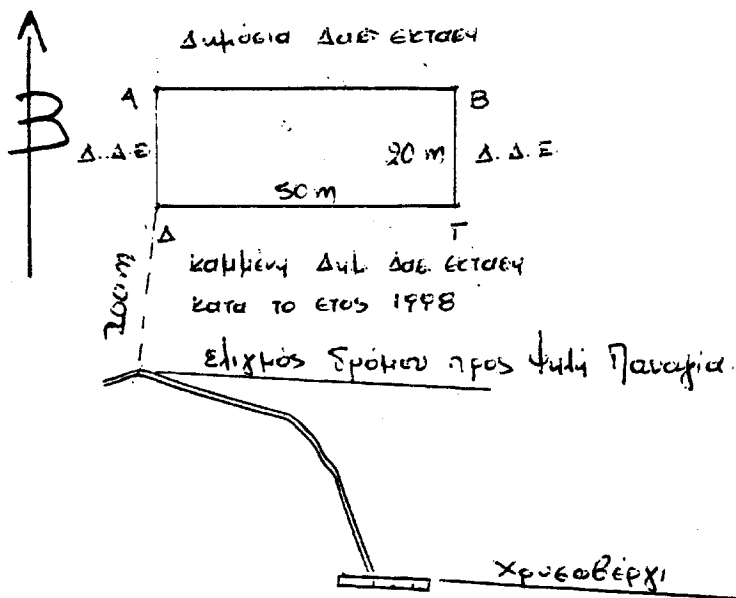 Δημόσια Δασ. έκταση
Α
Β
Β
Δ.Δ.Ε
20 m
Δ.Δ.Ε.
50 m
Δ
Γ
200 m
καμμένη Δημ. δασ. έκταση
κατα το ετος 1998
Ελιγμός δρόμου προς Ψηλή Παναγία.
Χρυσοβέργι